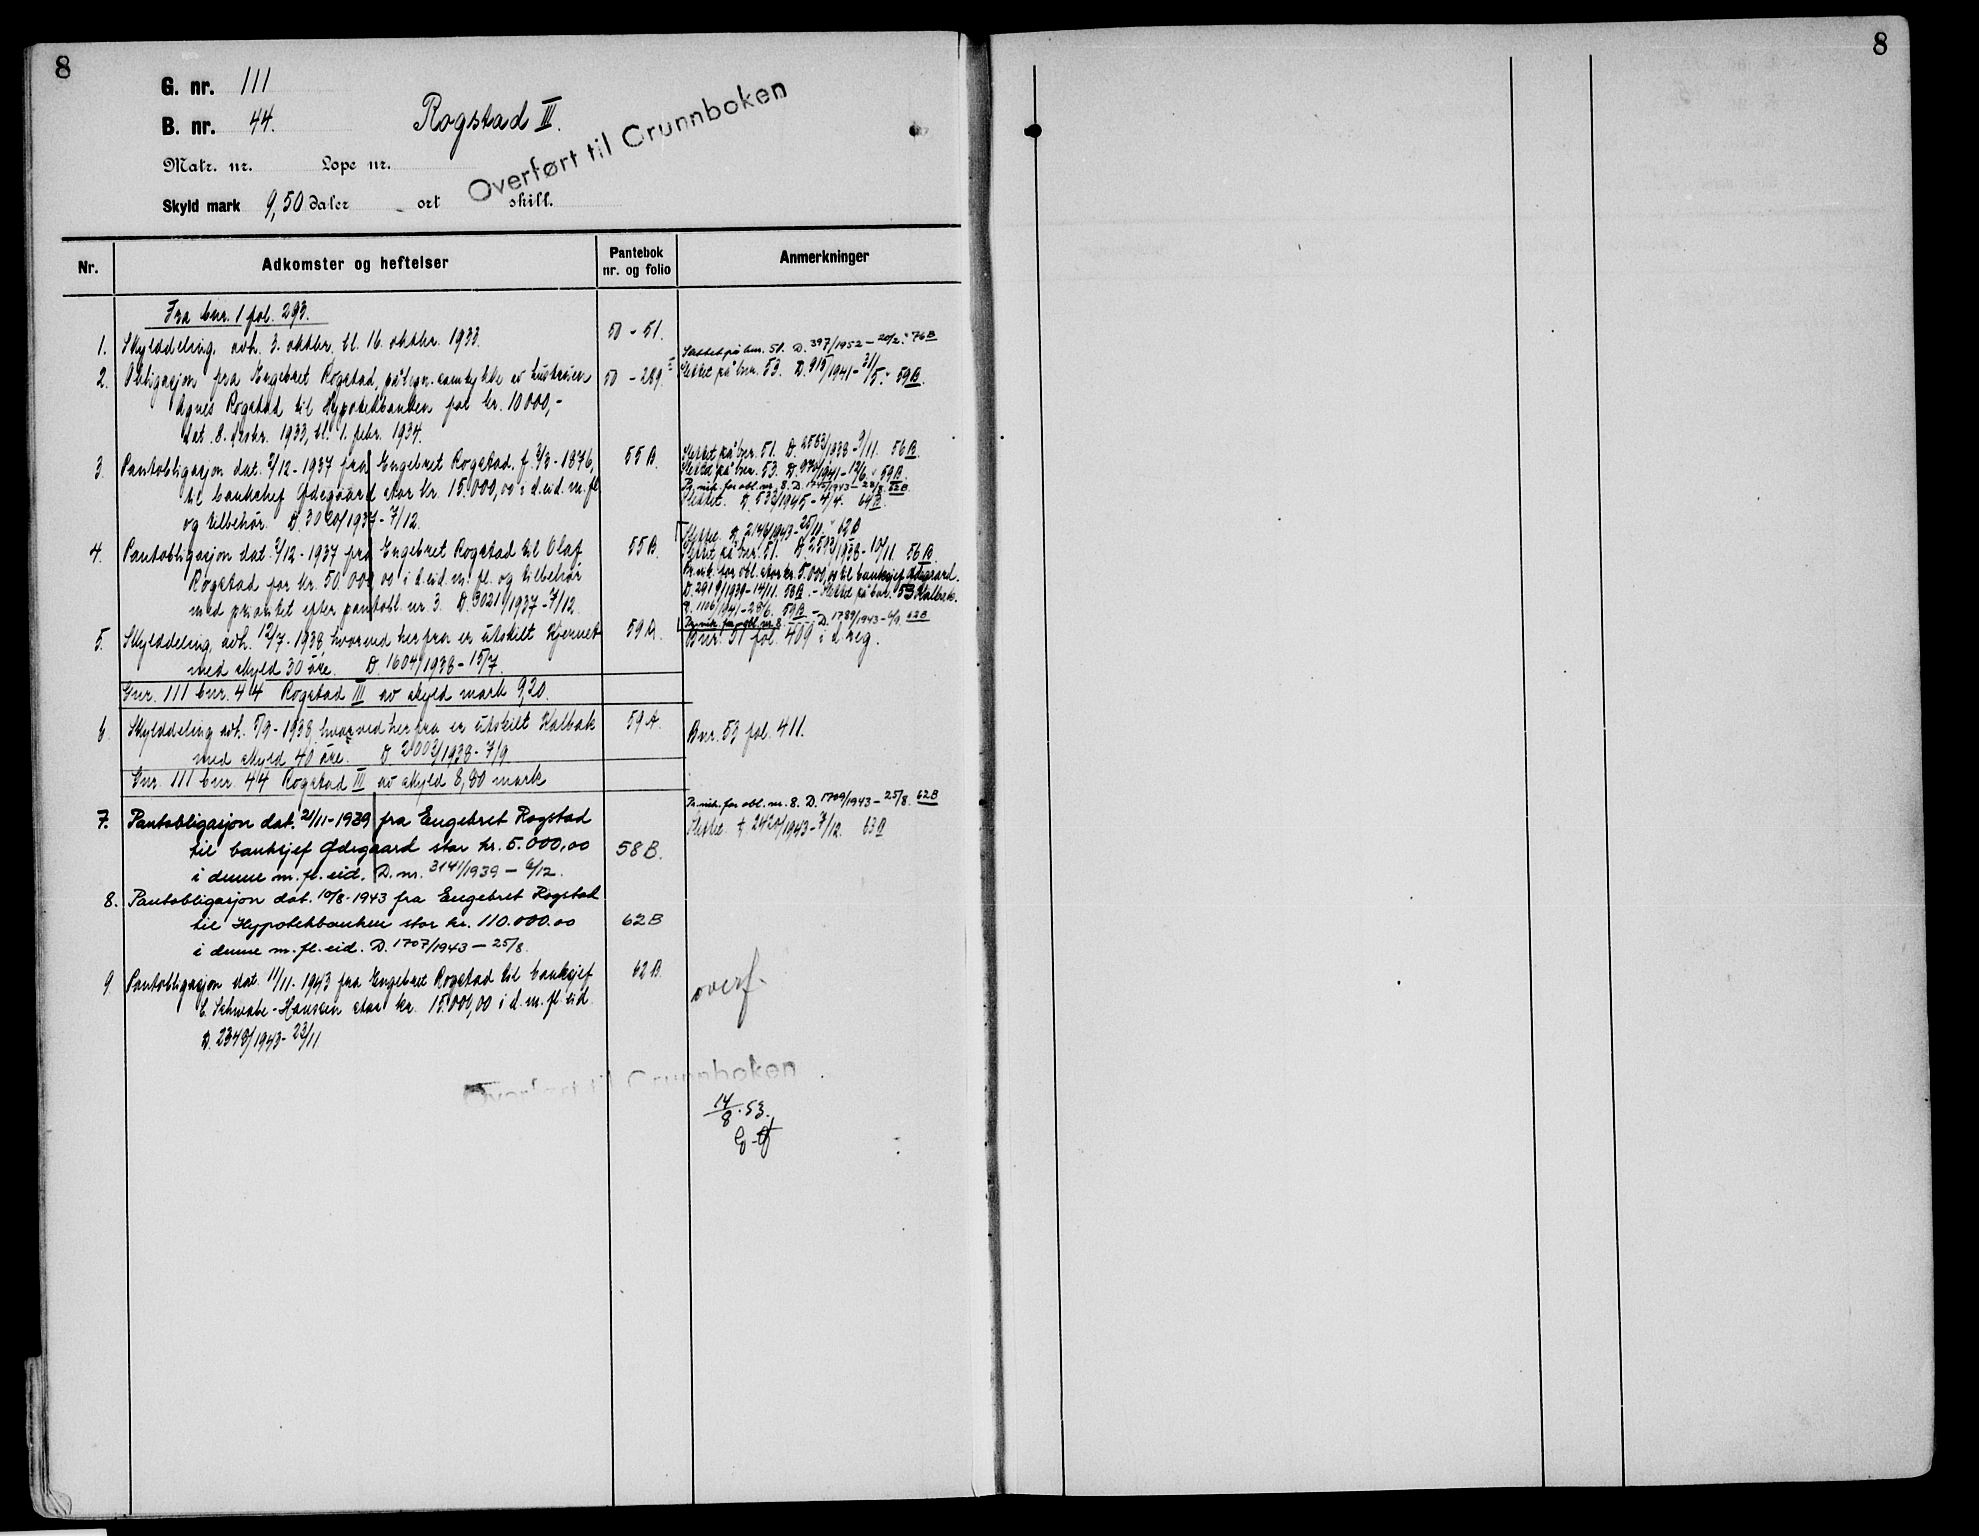 8
8
G. nr. 111
B. nr. 44.
Rogstad III.
Overført til Grunnboken
Matr. nr. Løpe nr.
Skyld mark 9,50 daler ort skill.
Nr. Adkomster og heftelser Pantebok nr. og folio Anmerkninger
Fra bnr. 1 fol. 293.
1. Skylddeling, avh. 3. oktbr. tl. 16. oktbr. 1933. 50 - 51.
Slettet på bnr. 51. D. 397/1952 - 20/2. 76B
2. Obligasjon fra Engebret Rogstad, påtegn. samtykke av hustruen 50 - 289. Slettet på bnr. 53. D. 915/1941 - 31/5. 59B.
Agnes Rogstad til Hypotekbanken for kr. 10000,-
dat. 8. desbr. 1933, tl. 1. febr. 1934.
3. Pantobligasjon dat. 2/12 - 1937 fra Engebret Rogstad, f. 3/3 - 1876, 55B. Slettet på bnr. 51. D. 2583/1938 - 9/11. 56B.
Slettet på bnr. 53. D. /1941 - 12/6. 59B.
til bankchef Ødegaard stor kr. 15.000,00 i d. eid. m. fl. Pr.vik. for obl. nr. 8. D. /1943 - 62B.
og tilbehör. D. 3020/1937 - 7/12. Slettet. D. 533/1945 - 4/4. 64B.
Slettet. D. 2146/1943 - 25/11. 62B
4. Pantobligasjon dat. 2/12 - 1937 fra Engebret Rogstad til Olaf 55B. Slettet på bnr. 51. D. 2593/1938 - 10/11. 56B.
Rogstad for kr. 50.000,00 i d. eid. m. fl. og tilbehör Pr.vik. for obl. stor kr. 5.000,00 til banksjef Ødegaard.
D. 2919/1939 - 14/11. 58B. - Slettet på bnr. 53 Kalbak.
med prioritet efter pantobl. nr 3. D. 3021/1937 - 7/12. D. 1106/1941 - 28/6. 59B -
Pr.vik. for obl. nr. 8 D. 1789/1943 - 6/9. 62B
5. Skylddeling, avh. 12/7 - 1938, hvorved herfra er utskilt Hjørnet 59A. Bnr. 51 fol. 409 i d. reg.
med skyld 30 öre. D. 1604/1938 - 15/7.
Gnr. 111 bnr. 44 Rogstad III av skyld mark 9,20.
6. Skylddeling avh. 5/9 - 1938, hvorved herfra er utskilt Kalbak 59A. Bnr. 53 fol. 411.
med skyld 40 öre. D. 2002/1938 - 7/9
Gnr. 111 bnr. 44 Rogstad III av skyld 8,80 mark
Pr.vik. for obl. nr. 8. D. 1709/1943 - 25/8. 62B
7. Pantobligasjon dat. 21/11 - 1939 fra Engebret Rogstad Slettet. D. 2420/1943 - 7/12. 63B
til banksjef Ødegaard stor kr. 5.000,00 58B.
i denne m. fl. eid. D. nr. 3141/1939 - 6/12.
8. Pantobligasjon dat. 10/8 - 1943 fra Engebret Rogstad
til Hypotekbanken stor kr. 110.000.00 62B
i denne m. fl. eid. D. 1707/1943 - 25/8.
9 Pantobligasjon dat. 11/11 - 1943 fra Engebret Rogstad til banksjef 62B.
E. Schwabe-Hansen stor kr. 15.000,00 i d. m. fl. eid. overf.
D. 2348/1943 - 23/11
Overført til Grunnboken
14/8. 53.